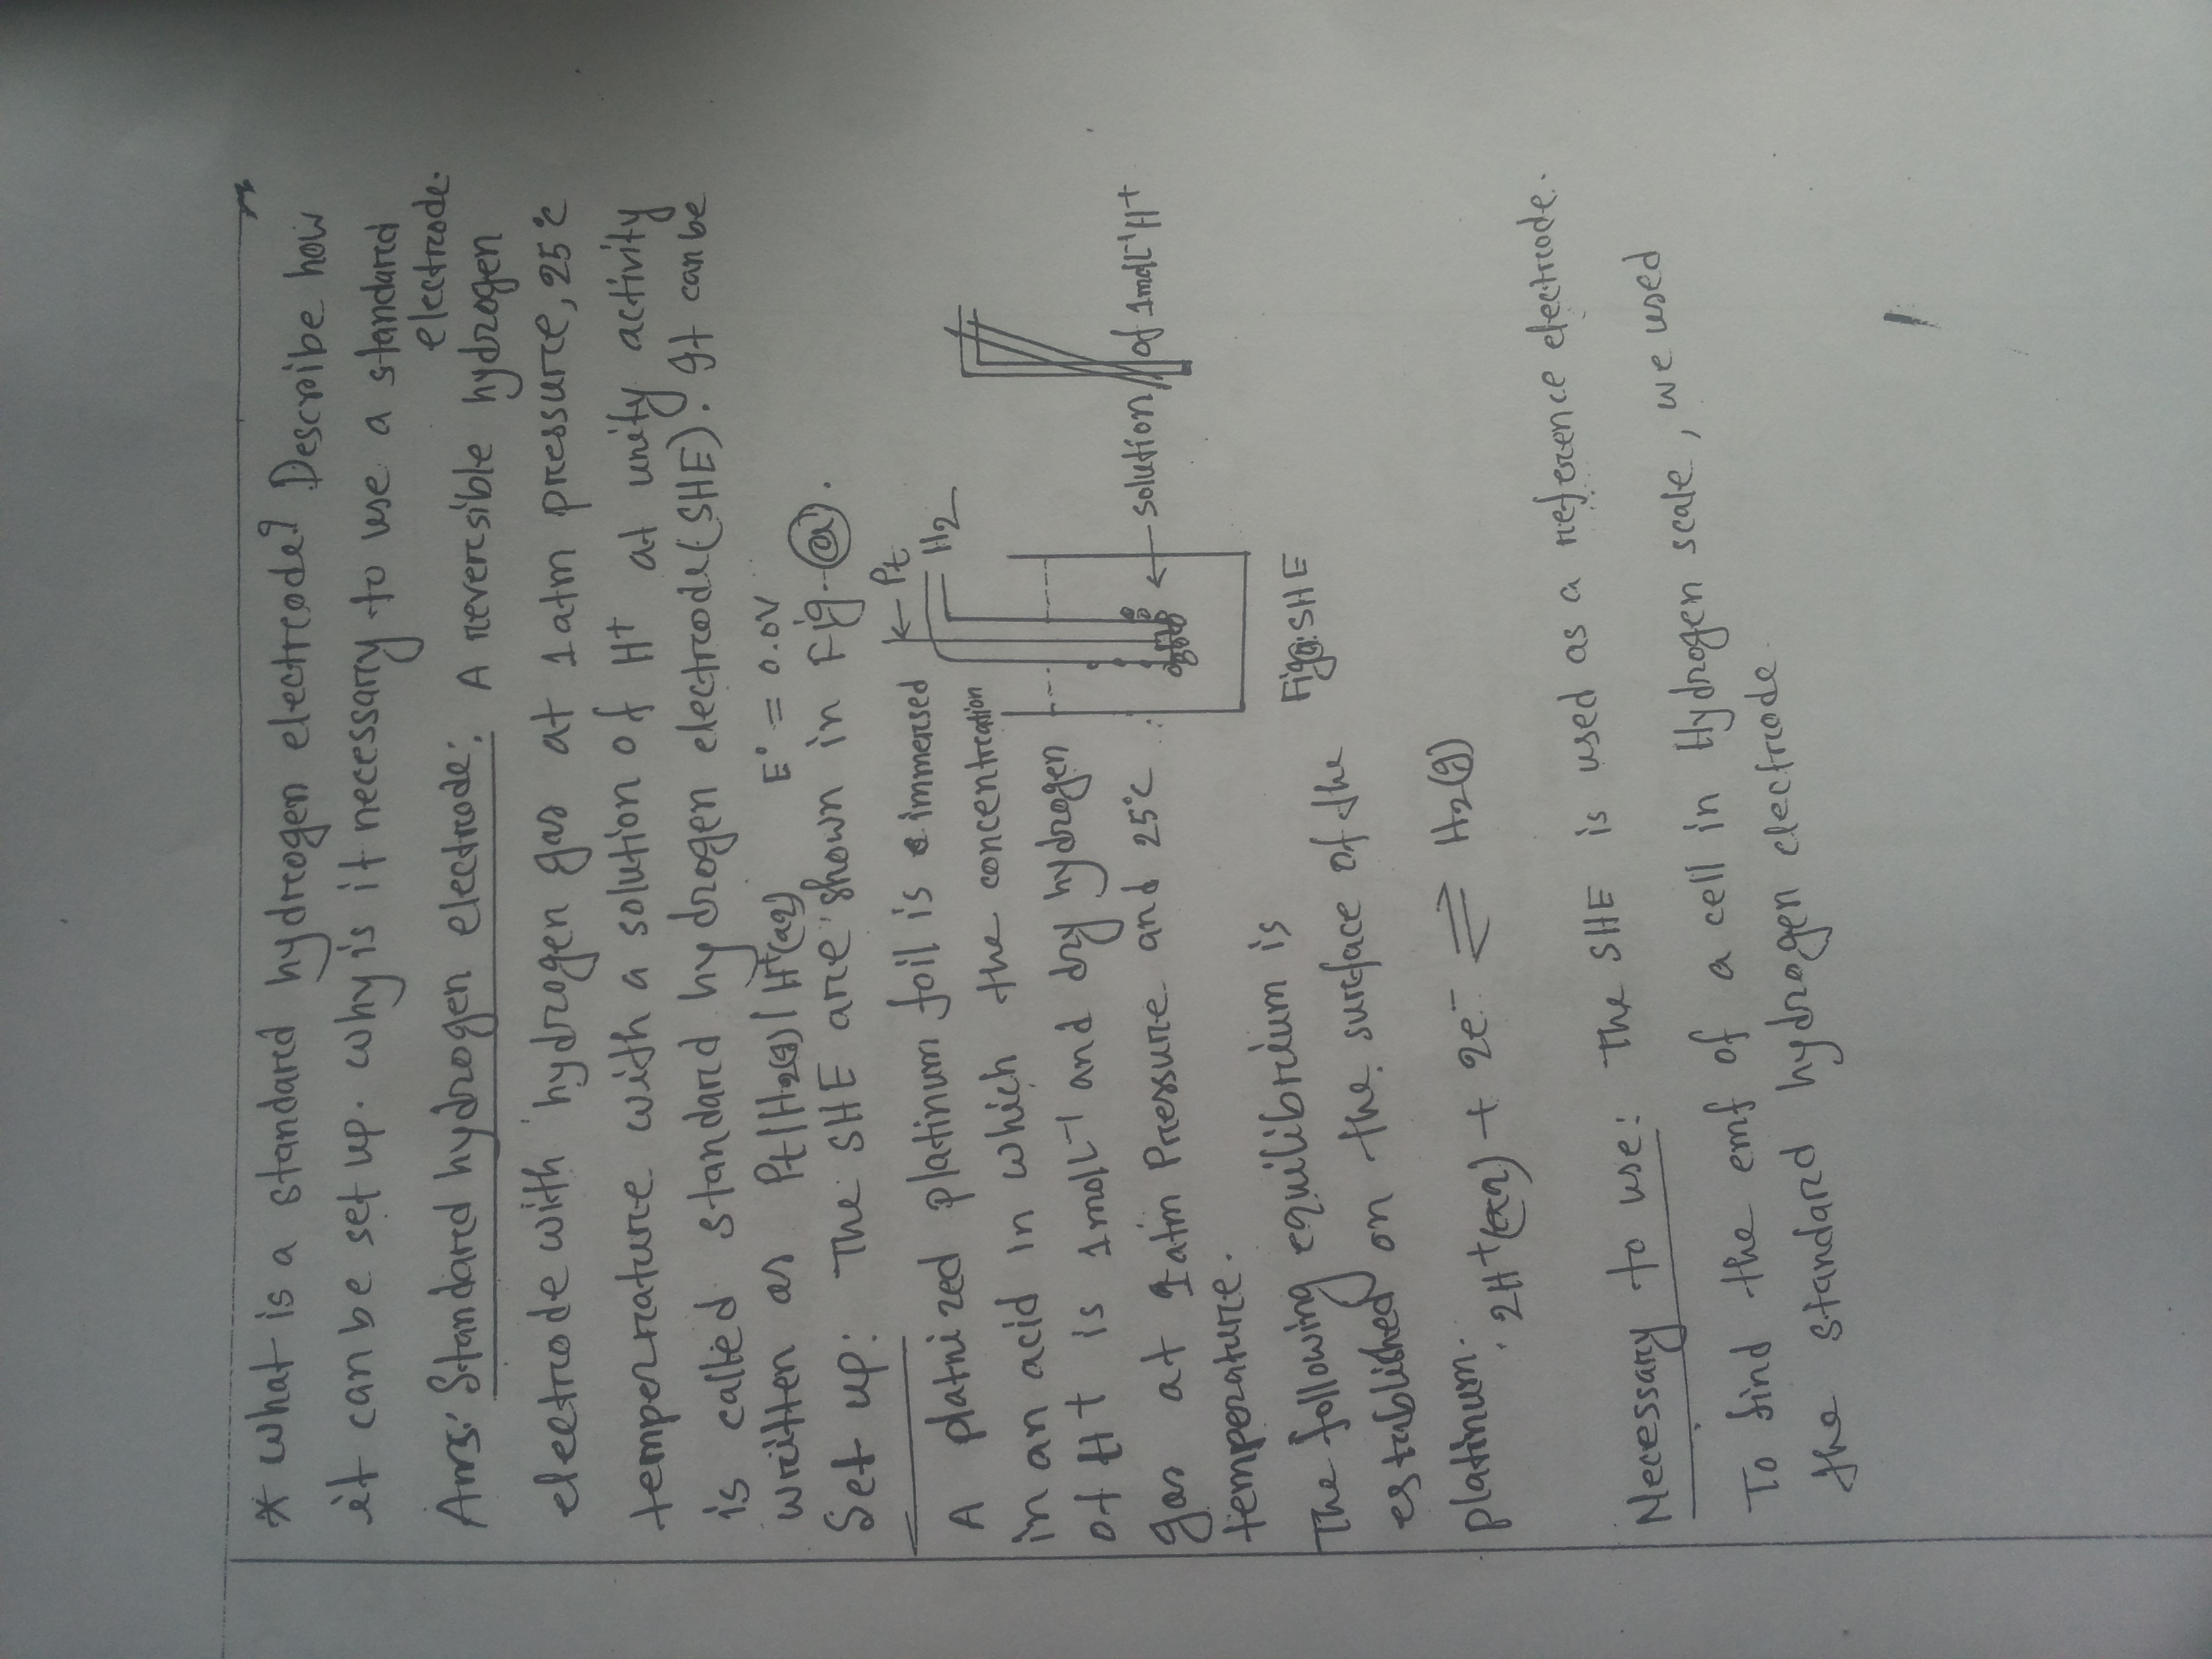 * What is a standard hydrogen electrode? Describe how
it can be set up. why is it necessary to use a standard
electrode.
Ans: Standard hydrogen electrode: A reversible hydrogen
electrode with hydrogen gas at 1 atm pressure, 25°C
temperature with a solution of H+ at unity activity
is called standard hydrogen electrode(SHE). It can be
written as Pt|H2(g)|H+(aq) E° = 0.0V
Set up: The SHE are shown in Fig-(a).
A platnized platinum foil is immersed
in an acid in which the concentration
of H+ is 1molL-1 and dry hydrogen
gas at 1 atm Pressure and 25°C
temperature.
← Pt
H2
← solution of 1molL-1H+
Fig(a):SHE
The following equilibrium is
established on the surface of the
platinum.
2H+(aq) + 2e- ⇌ H2(g)
Necessary to use: The SHE is used as a reference electrode.
To find the emf of a cell in Hydrogen scale, we used
the standard hydrogen electrode